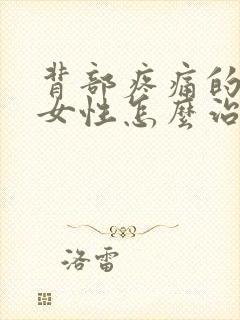 背部疼痛的
女性怎麼治
洛雷